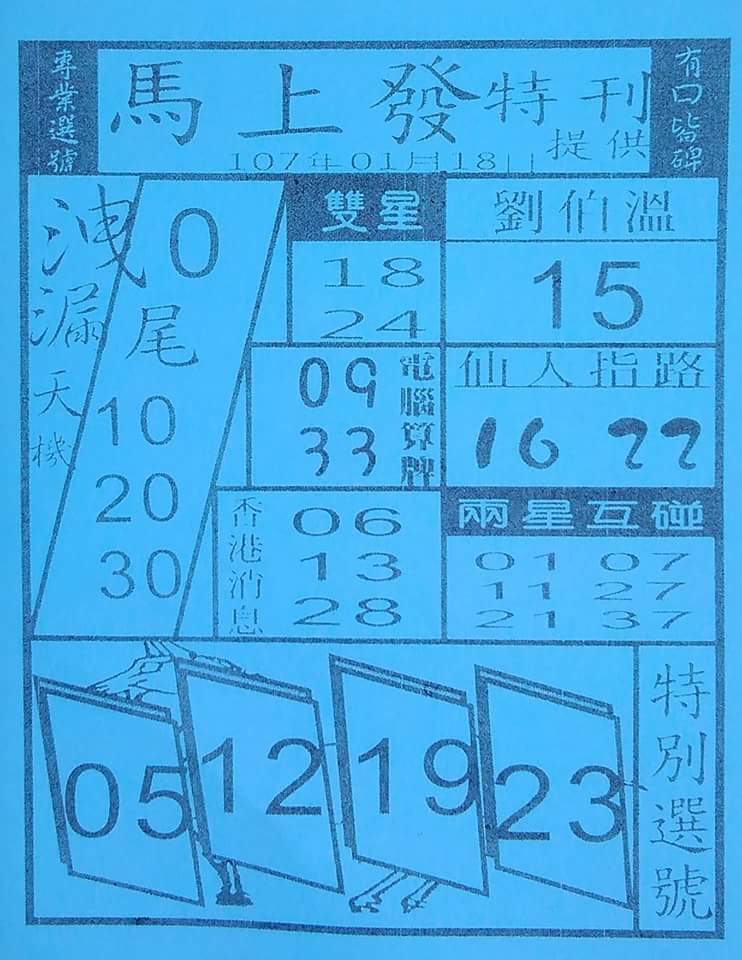 專業選號
馬上發特刊
提供
107年01月18日
有口皆碑
洩漏天機
0
尾
10
20
30
雙星
18
24
劉伯溫
15
09
33
電腦算牌
仙人指路
16 22
香港消息
06
13
28
兩星互碰
01 07
11 27
21 37
05 12 19 23
特別選號